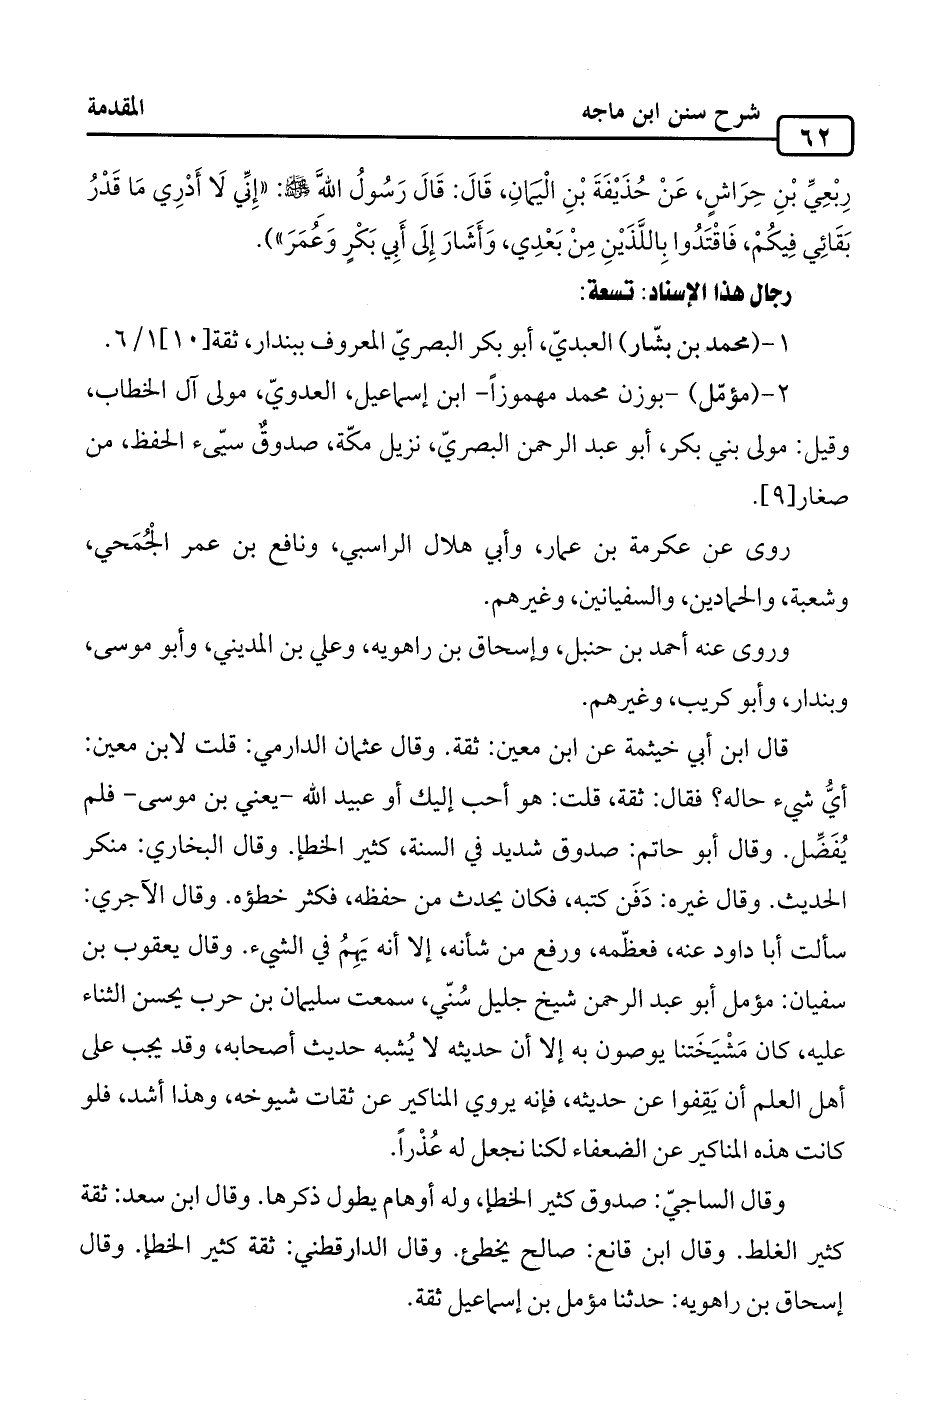 المقدمة
شرح سنن ابن ماجه
٦٢
رِبْعِيِّ بْنِ حِرَاشٍ، عَنْ حُذَيْفَةَ بْنِ الْيَمَانِ، قَالَ: قَالَ رَسُولُ اللهِ ﷺ: «إِنِّي لَا أَدْرِي مَا قَدْرُ
بَقَائِي فِيكُمْ، فَاقْتَدُوا بِاللَّذَيْنِ مِنْ بَعْدِي، وَأَشَارَ إِلَى أَبِي بَكْرٍ وَعُمَرَ»).
رجال هذا الإسناد: تسعة:
١-(محمد بن بشّار) العبديّ، أبو بكر البصريّ المعروف ببندار، ثقة[١٠]١/ ٦.
٢-(مؤمّل) -بوزن محمد مهموزاً- ابن إسماعيل، العدويّ، مولى آل الخطاب،
وقيل: مولى بني بكر، أبو عبد الرحمن البصريّ، نزيل مكّة، صدوقٌ سيّىء الحفظ، من
صغار[٩].
روى عن عكرمة بن عمار، وأبي هلال الراسبي، ونافع بن عمر الجُمَحي،
وشعبة، والحمادين، والسفيانين، وغيرهم.
وروى عنه أحمد بن حنبل، وإسحاق بن راهويه، وعلي بن المديني، وأبو موسى،
وبندار، وأبو كريب، وغيرهم.
قال ابن أبي خيثمة عن ابن معين: ثقة. وقال عثمان الدارمي: قلت لابن معين:
أيُّ شيء حاله؟ فقال: ثقة، قلت: هو أحب إليك أو عبيد الله -يعني بن موسى- فلم
يُفَضِّل. وقال أبو حاتم: صدوق شديد في السنة، كثير الخطإ. وقال البخاري: منكر
الحديث. وقال غيره: دَفَن كتبه، فكان يحدث من حفظه، فكثر خطؤه. وقال الآجري:
سألت أبا داود عنه، فعظّمه، ورفع من شأنه، إلا أنه يَهِمُ في الشيء. وقال يعقوب بن
سفيان: مؤمل أبو عبد الرحمن شيخ جليل سُنّي، سمعت سليمان بن حرب يحسن الثناء
عليه، كان مَشْيَخَتنا يوصون به إلا أن حديثه لا يُشبه حديث أصحابه، وقد يجب على
أهل العلم أن يَقِفوا عن حديثه، فإنه يروي المناكير عن ثقات شيوخه، وهذا أشد، فلو
كانت هذه المناكير عن الضعفاء لكنا نجعل له عُذْراً.
وقال الساجيّ: صدوق كثير الخطإ، وله أوهام يطول ذكرها. وقال ابن سعد: ثقة
كثير الغلط. وقال ابن قانع: صالح يخطئ. وقال الدارقطني: ثقة كثير الخطإ. وقال
إسحاق بن راهويه: حدثنا مؤمل بن إسماعيل ثقة.